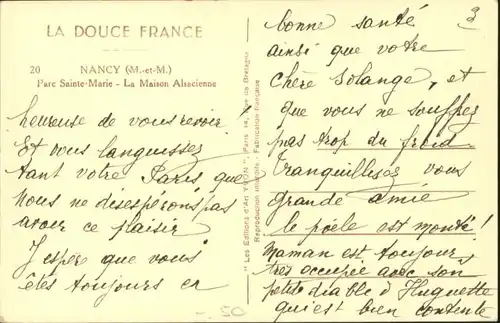 LA DOUCE FRANCE
20 NANCY (M.-et-M.)
Parc Sainte-Marie - La Maison Alsacienne
heureuse de vous revoir!
Et vous languissez
tant votre Paris que
nous ne désespérons pas
avoir ce plaisir
J'espère que vous
êtes toujours en
" Les Editions d'Art YVON ", Paris Rue de Bretagne
Reproduction interdite. Fabrication française
3
bonne santé
ainsi que votre
chère Solange, et
que vous ne souffrez
pas trop du froid
Tranquillisez vous
grande amie
le poële est monté!
Maman est toujours
très occupée avec son
petit diable d'Huguette
qui est bien contente
50